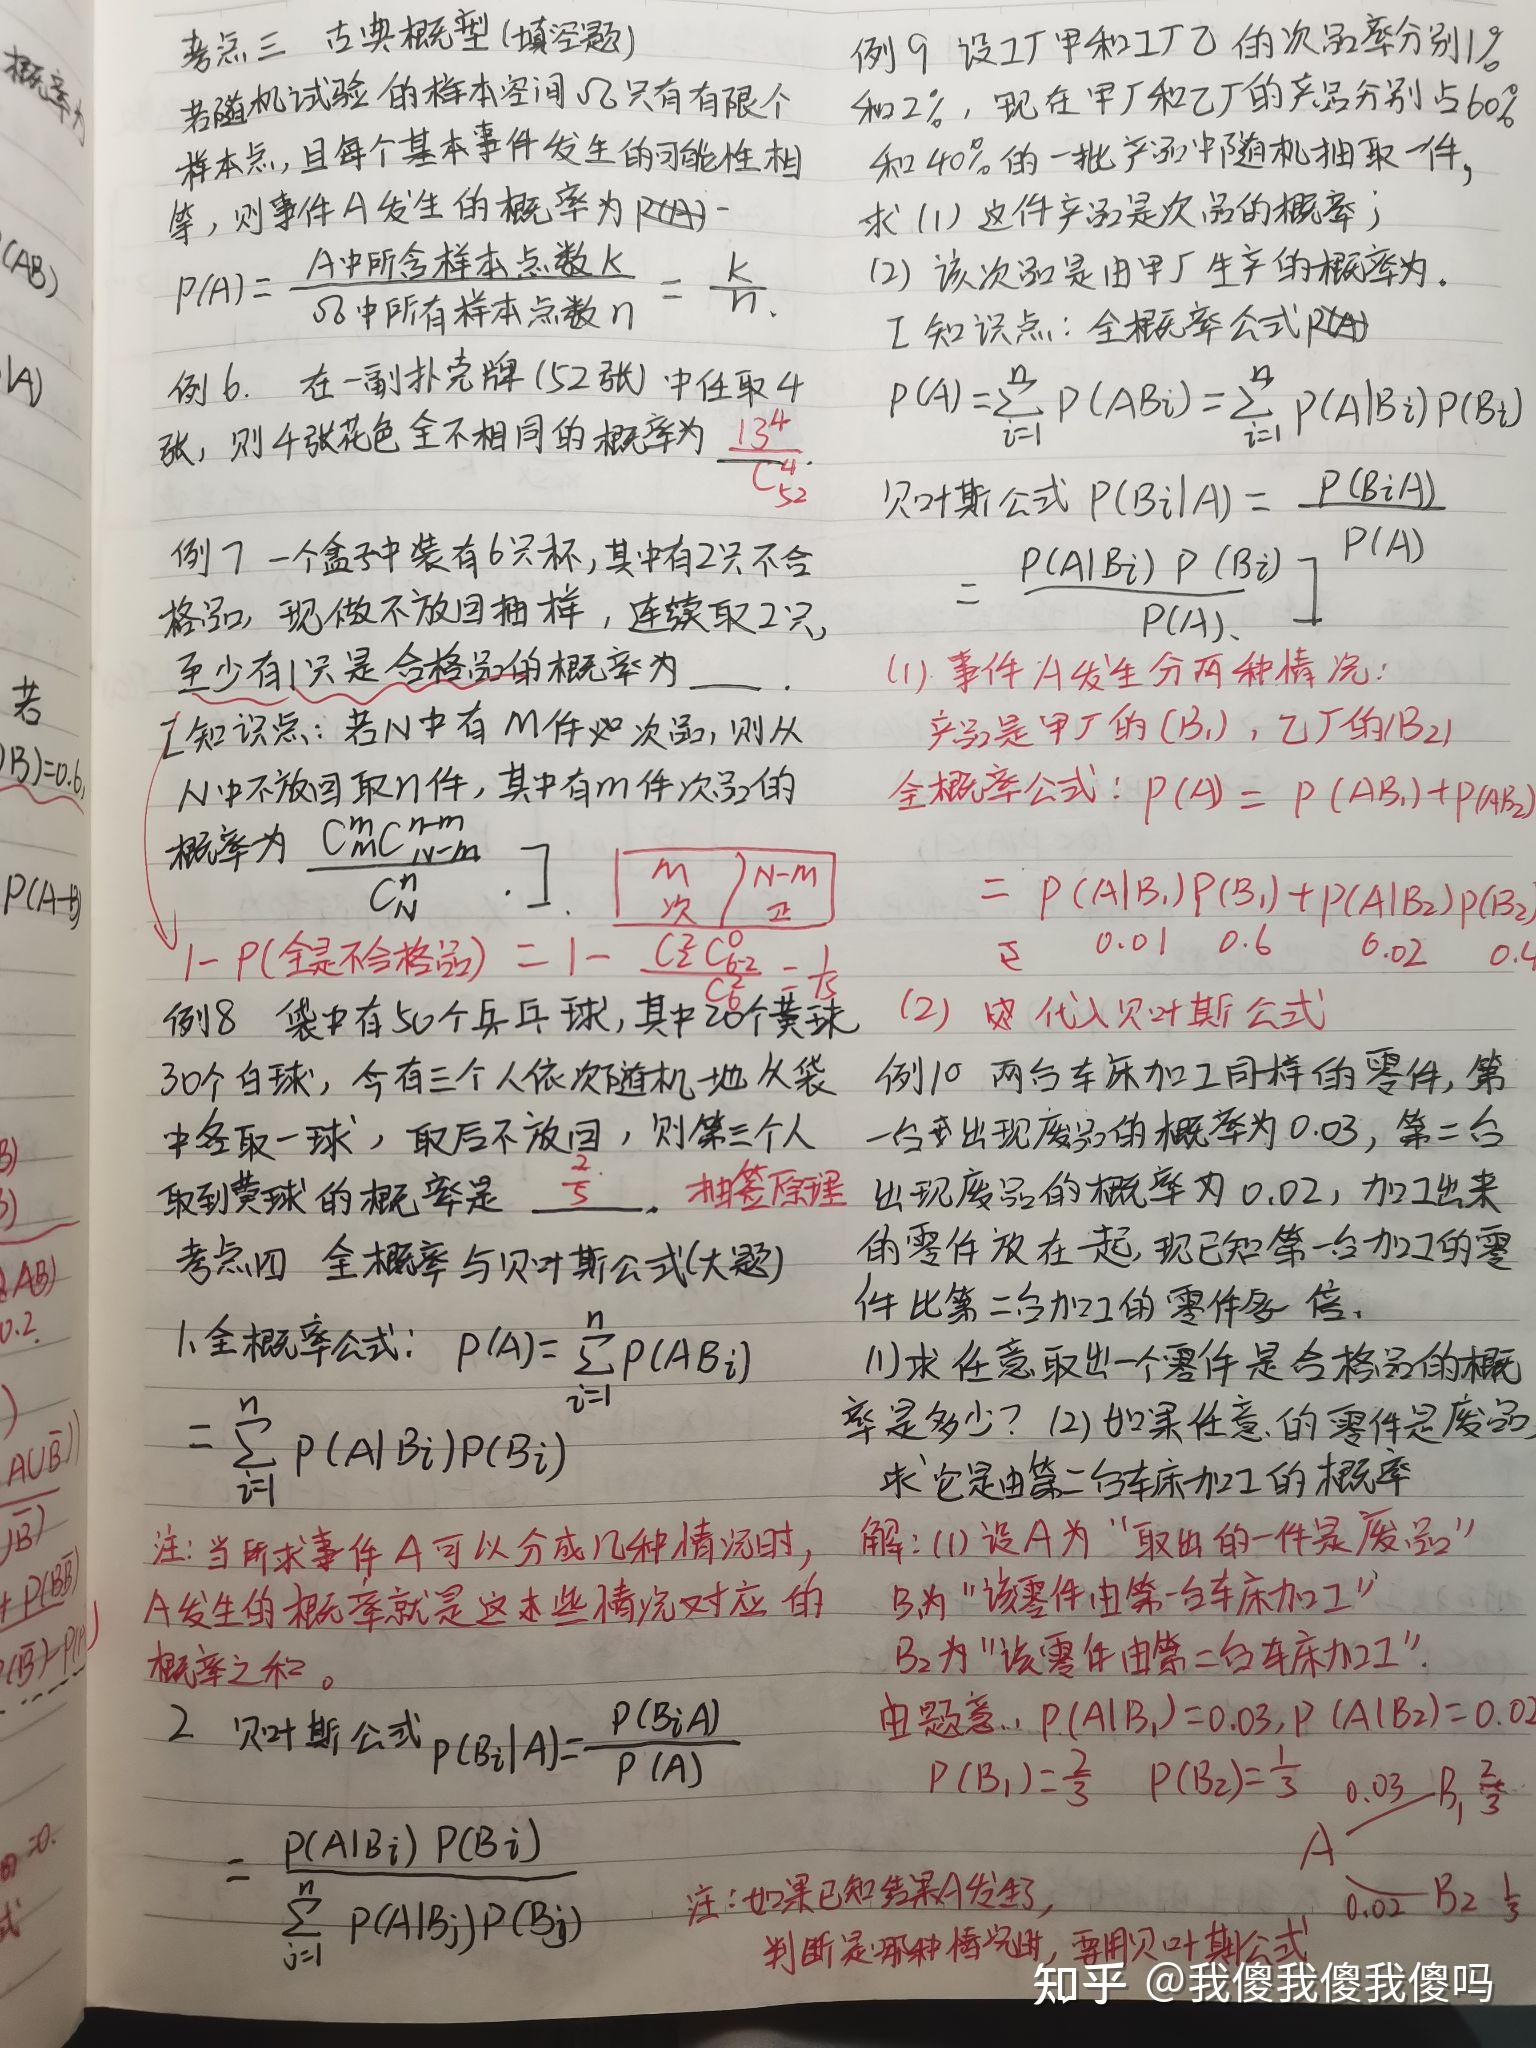 概率为
(AB)
|A)
若
B)=0.6,
P(A-B)
B)
AB)
0.2.
A∪B̄))
B̄)
+P(BB̄)
=0.
式
考点三 古典概型(填空题)
若随机试验的样本空间Ω只有有限个
样本点,且每个基本事件发生的可能性相
等,则事件A发生的概率为
P(A)= A中所含样本点数k / Ω中所有样本点数n = k/n.
例6. 在一副扑克牌(52张)中任取4
张,则4张花色全不相同的概率为 13⁴/C⁴₅₂.
例7 一个盒子中装有6只杯,其中有2只不合
格品,现做不放回抽样,连续取2只,
至少有1只是合格品的概率为___.
[知识点:若N中有M件次品,则从
N中不放回取n件,其中有m件次品的
概率为 C_M^m C_{N-M}^{n-m} / C_N^n .]
M 次 | N-M 正
1-P(全是不合格品)=1- C₂² C⁰₆₋₂ / C₆² = 1/15
例8 袋中有50个乒乓球,其中20个黄球
30个白球,今有三个人依次随机地从袋
中各取一球,取后不放回,则第三个人
取到黄球的概率是 2/5. 抽签原理
考点四 全概率与贝叶斯公式(大题)
1.全概率公式: P(A)=∑_{i=1}^n P(ABi)
=∑_{i=1}^n P(A|Bi)P(Bi)
注:当所求事件A可以分成几种情况时,
A发生的概率就是这些情况对应的
概率之和。
2 贝叶斯公式 P(Bi|A)= P(BiA)/P(A)
= P(A|Bi)P(Bi) / ∑_{j=1}^n P(A|Bj)P(Bj)
例9 设工厂甲和工厂乙的次品率分别1%
和2%,现在甲厂和乙厂的产品分别占60%
和40%的一批产品中随机抽取一件,
求(1)这件产品是次品的概率;
(2)该次品是由甲厂生产的概率为.
[知识点:全概率公式
P(A)=∑_{i=1}^n P(ABi)=∑_{i=1}^n P(A|Bi)P(Bi)
贝叶斯公式 P(Bi|A)= P(BiA)/P(A)
= P(A|Bi)P(Bi)/P(A).]
(1).事件A发生分两种情况:
产品是甲厂的(B₁),乙厂的(B₂)
全概率公式:P(A)=P(AB₁)+P(AB₂)
=P(A|B₁)P(B₁)+P(A|B₂)P(B₂)
0.01 0.6 0.02 0.4
(2) 代入贝叶斯公式
例10 两台车床加工同样的零件,第
一台出现废品的概率为0.03,第二台
出现废品的概率为0.02,加工出来
的零件放在一起,现已知第一台加工的零
件比第二台加工的零件多一倍.
(1)求任意取出一个零件是合格品的概
率是多少?(2)如果任意的零件是废品,
求它是由第二台车床加工的概率
解:(1)设A为“取出的一件是废品”
B₁为“该零件由第一台车床加工”
B₂为“该零件由第二台车床加工”.
由题意,P(A|B₁)=0.03,P(A|B₂)=0.02
P(B₁)=2/3 P(B₂)=1/3
0.03 B₁ 2/3
A
0.02 B₂ 1/3
注:如果已知结果A发生了,
判断是哪种情况时,要用贝叶斯公式
知乎 @我傻我傻我傻吗